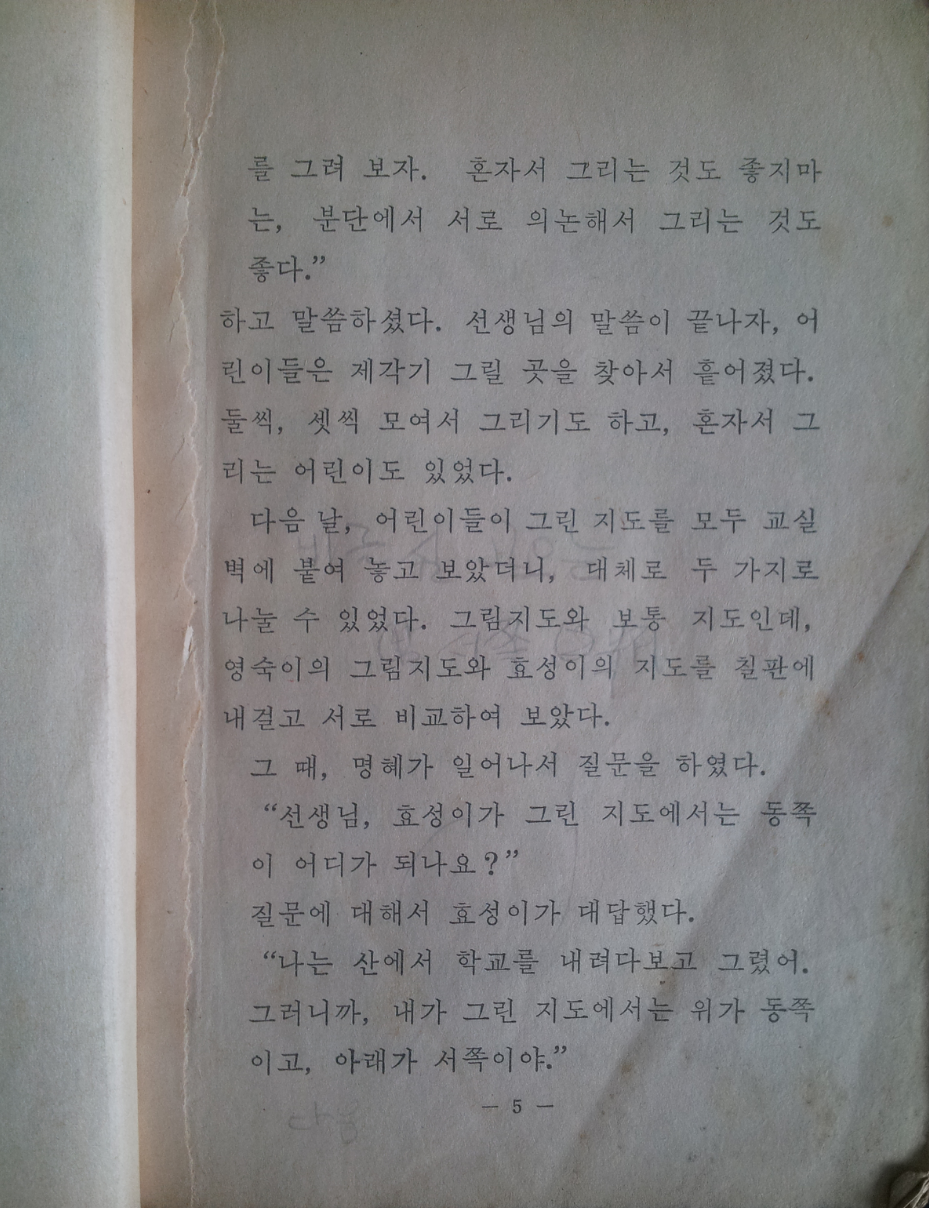 를 그려 보자. 혼자서 그리는 것도 좋지마
는, 분단에서 서로 의논해서 그리는 것도
좋다.”
하고 말씀하셨다. 선생님의 말씀이 끝나자, 어
린이들은 제각기 그릴 곳을 찾아서 흩어졌다.
둘씩, 셋씩 모여서 그리기도 하고, 혼자서 그
리는 어린이도 있었다.
다음 날, 어린이들이 그린 지도를 모두 교실
벽에 붙여 놓고 보았더니, 대체로 두 가지로
나눌 수 있었다. 그림지도와 보통 지도인데,
영숙이의 그림지도와 효성이의 지도를 칠판에
내걸고 서로 비교하여 보았다.
그 때, 명혜가 일어나서 질문을 하였다.
“선생님, 효성이가 그린 지도에서는 동쪽
이 어디가 되나요?”
질문에 대해서 효성이가 대답했다.
“나는 산에서 학교를 내려다보고 그렸어.
그러니까, 내가 그린 지도에서는 위가 동쪽
이고, 아래가 서쪽이야.”
— 5 —